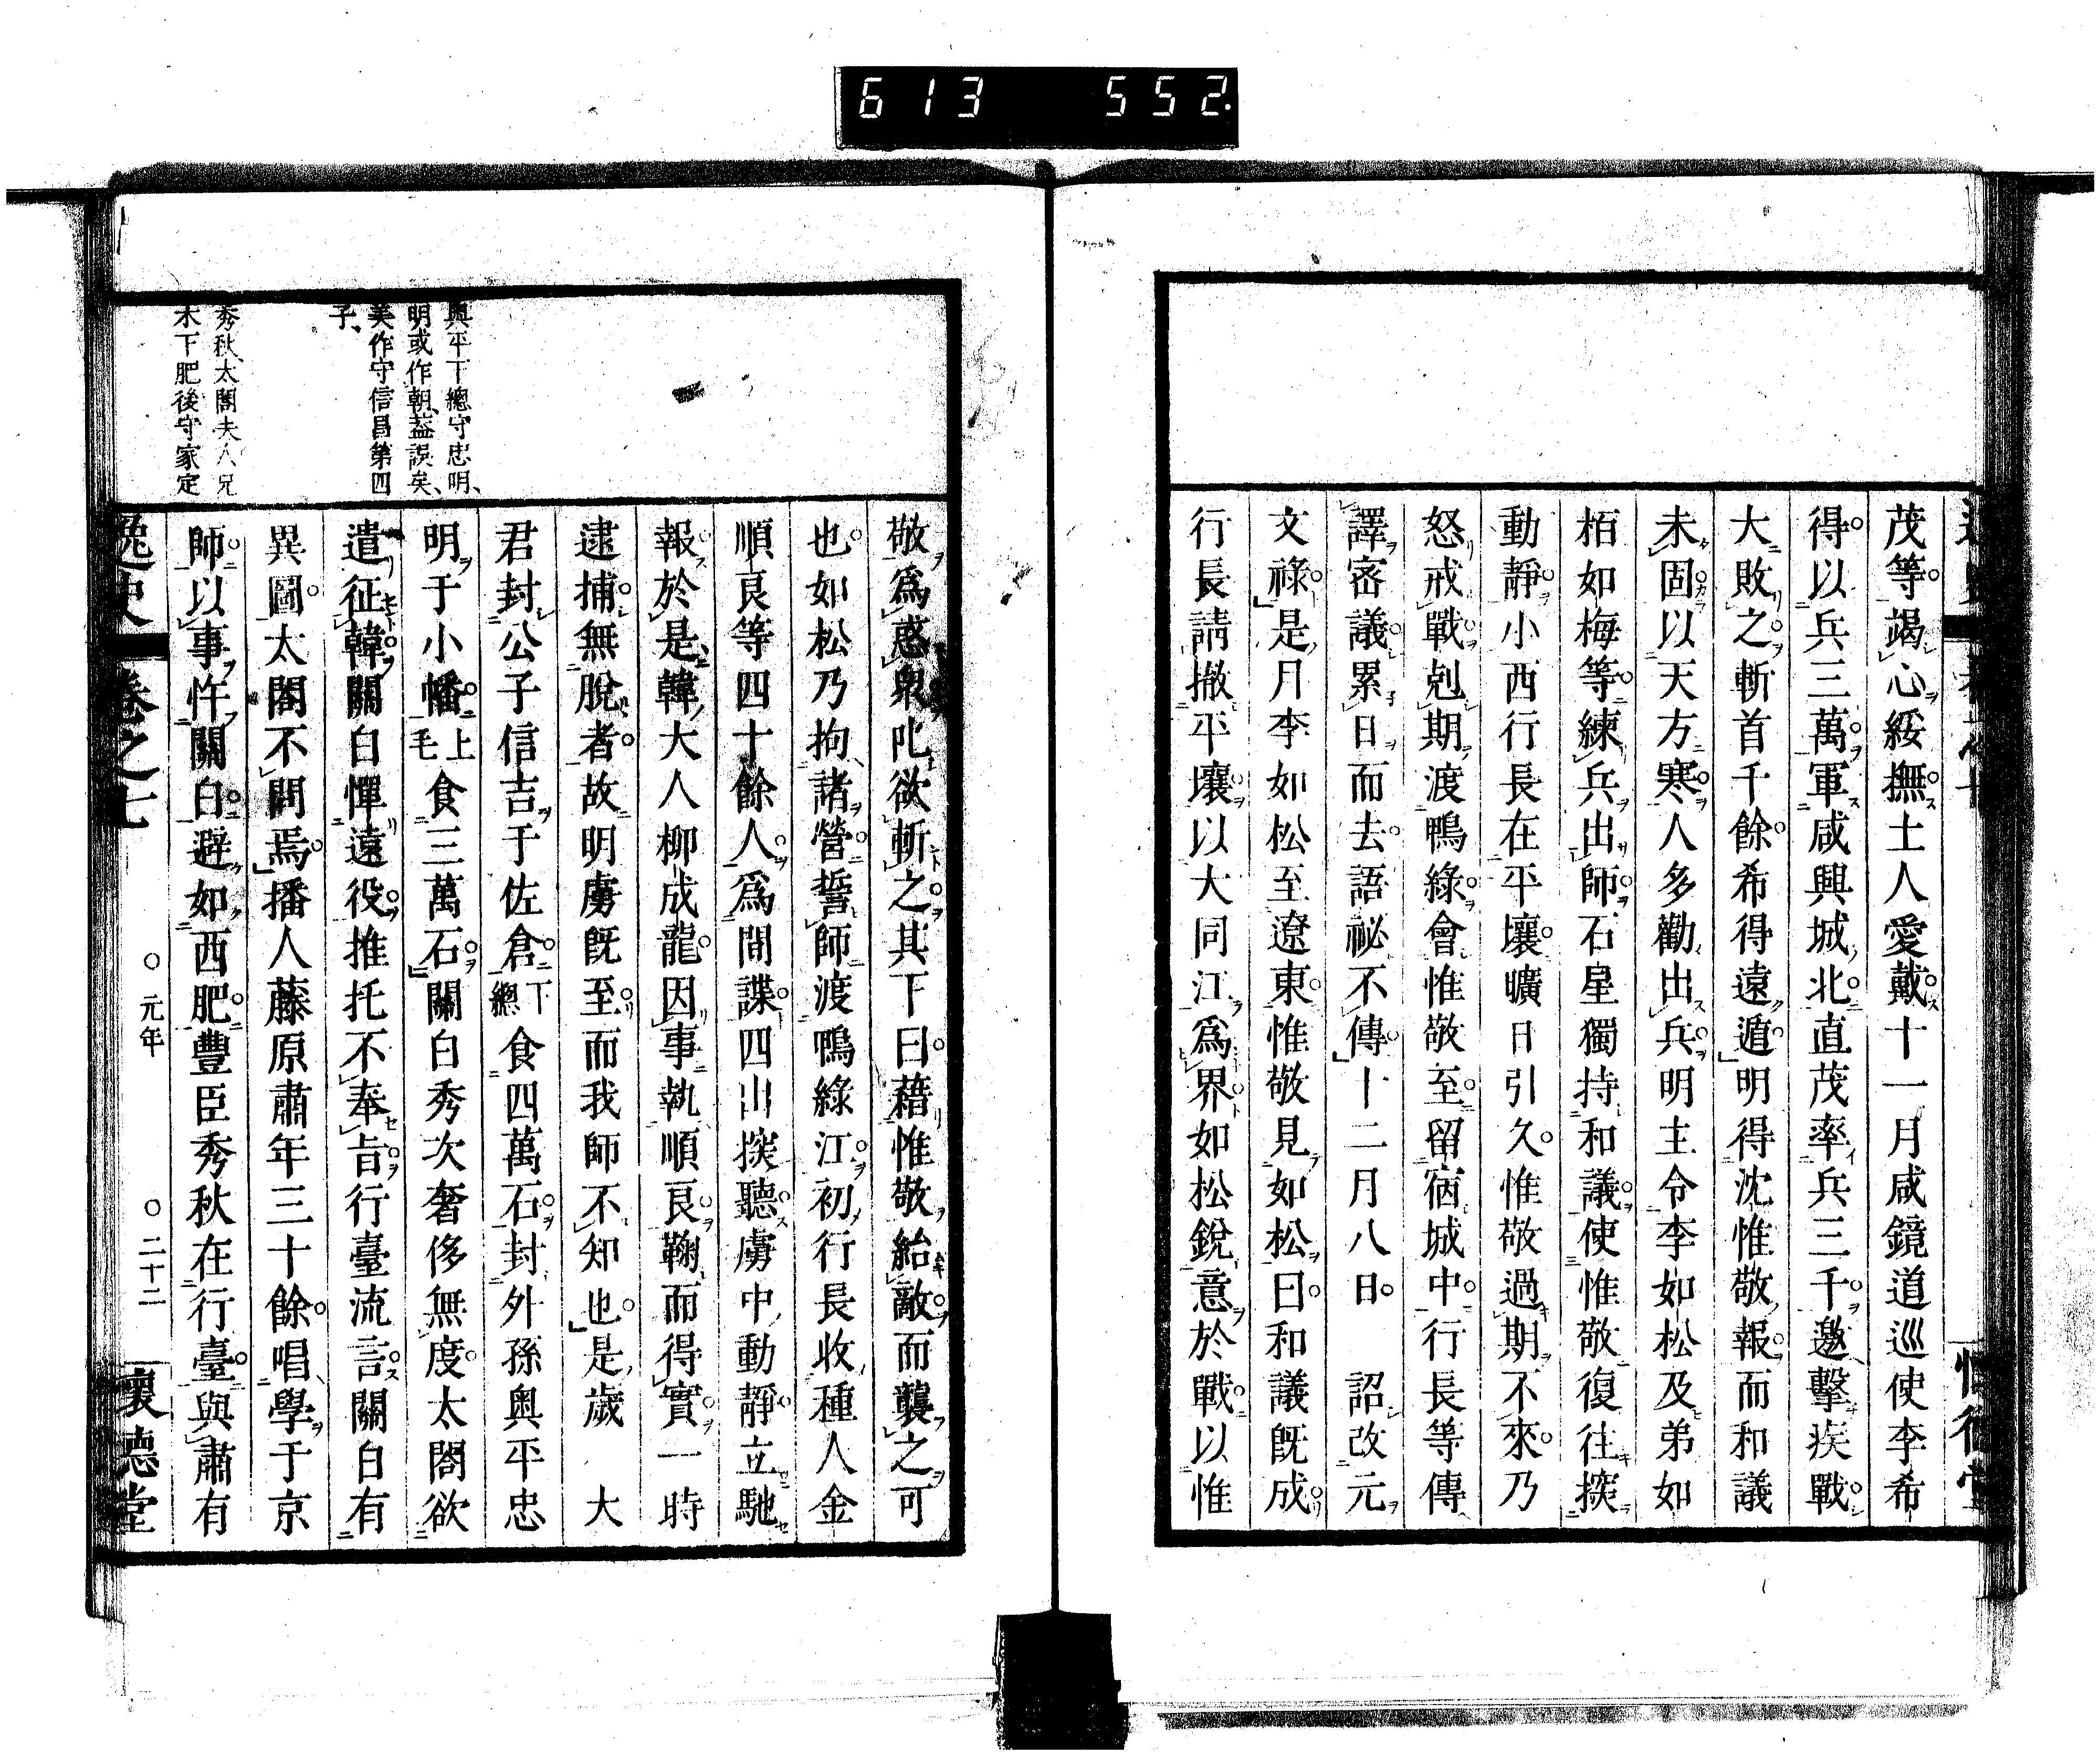 613 552
茂等竭心綏撫土人愛戴十一月咸鏡道巡使李希
得以兵三萬軍咸興城北直茂率兵三千邀擊疾戰
大敗之斬首千餘希得遠遁明得沈惟敬報而和議
未固以天方寒人多勸出兵明主令李如松及弟如
栢如梅等練兵出師石星獨持和議使惟敬復往探
動靜小西行長在平壤曠日引久惟敬過期不來乃
怒戒戰剋期渡鴨綠會惟敬至留宿城中行長等傳
譯密議累日而去語祕不傳十二月八日 詔改元
文祿是月李如松至遼東惟敬見如松曰和議既成
行長請撤平壤以大同江為界如松銳意於戰以惟
興平下總守忠明、
明或作朝、蓋誤矣、
美作守信昌第四
子、
秀秋、太閤夫人兄
木下肥後守家定
敬爲惑衆叱欲斬之其下曰藉惟敬紿敵而襲之可
也如松乃拘諸營誓師渡鴨綠江初行長收種人金
順良等四十餘人爲間諜四出探聽虜中動靜立馳
報於是韓大人柳成龍因事執順良鞠而得實一時
逮捕無脫者故明虜既至而我師不知也是歲 大
君封公子信吉于佐倉下總食四萬石封外孫奧平忠
明于小幡上毛食三萬石關白秀次奢侈無度太閤欲
遣征韓關白憚遠役推托不奉旨行臺流言關白有
異圖太閤不問焉播人藤原肅年三十餘唱學于京
師以事忤關白避如西肥豐臣秀秋在行臺與肅有
逸史 卷之七 ○元年 ○二十二 懷德堂